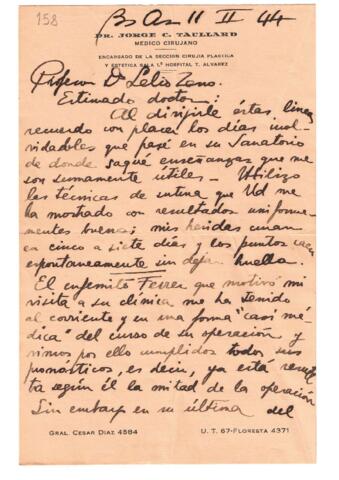 158
Bs As 11 II 44
DR. JORGE C. TAULLARD
MEDICO CIRUJANO
ENCARGADO DE LA SECCION CIRUJIA PLASTICA
Y ESTETICA SALA 1ª HOSPITAL T. ALVAREZ
Profesor Dr Lelio Zeno.
Estimado doctor:
Al dirijirle éstas lineas
recuerdo con placer los días inol-
vidables que pasé en su Sanatorio
de donde saqué enseñanzas que me
son sumamente utiles - Utilizo
las técnicas de sutura que Ud me
ha mostrado con resultados uniforme-
mentes buenos; mis heridas curan
en cinco a siete días y los puntos caen
espontaneamente sin dejar huella.
El enfermito Ferrer que motivó mi
visita a su clinica me ha tenido
al corriente y en una forma "casi mé-
dica" del curso de su operación y
vimos por ello cumplidos todos sus
pronosticos, es decir, ya está resuel
ta según él la mitad de la operación
Sin embargo en su última del
GRAL. CESAR DIAZ 4584
U. T. 67-FLORESTA 4371